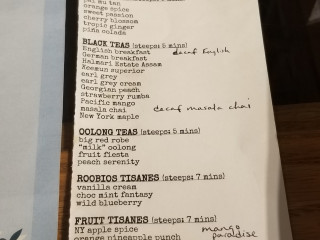 pai mu tan
orange spice
sweet passion
cherry blossom
tropic ginger
piña colada
BLACK TEAS (steeps: 5 mins)
English breakfast decaf English
German breakfast
Halmari Estate Assam
Keemun superior
earl grey
earl grey cream
Georgian peach
strawberry rumba
Pacific mango
masala chai decaf masala chai
New York maple
OOLONG TEAS (steeps: 5 mins)
big red robe
"milk" oolong
fruit fiesta
peach serenity
ROOBIOS TISANES (steeps: 7 mins)
vanilla cream
choc mint fantasy
wild blueberry
FRUIT TISANES (steeps: 7 mins)
NY apple spice mango
orange pineapple punch paradise